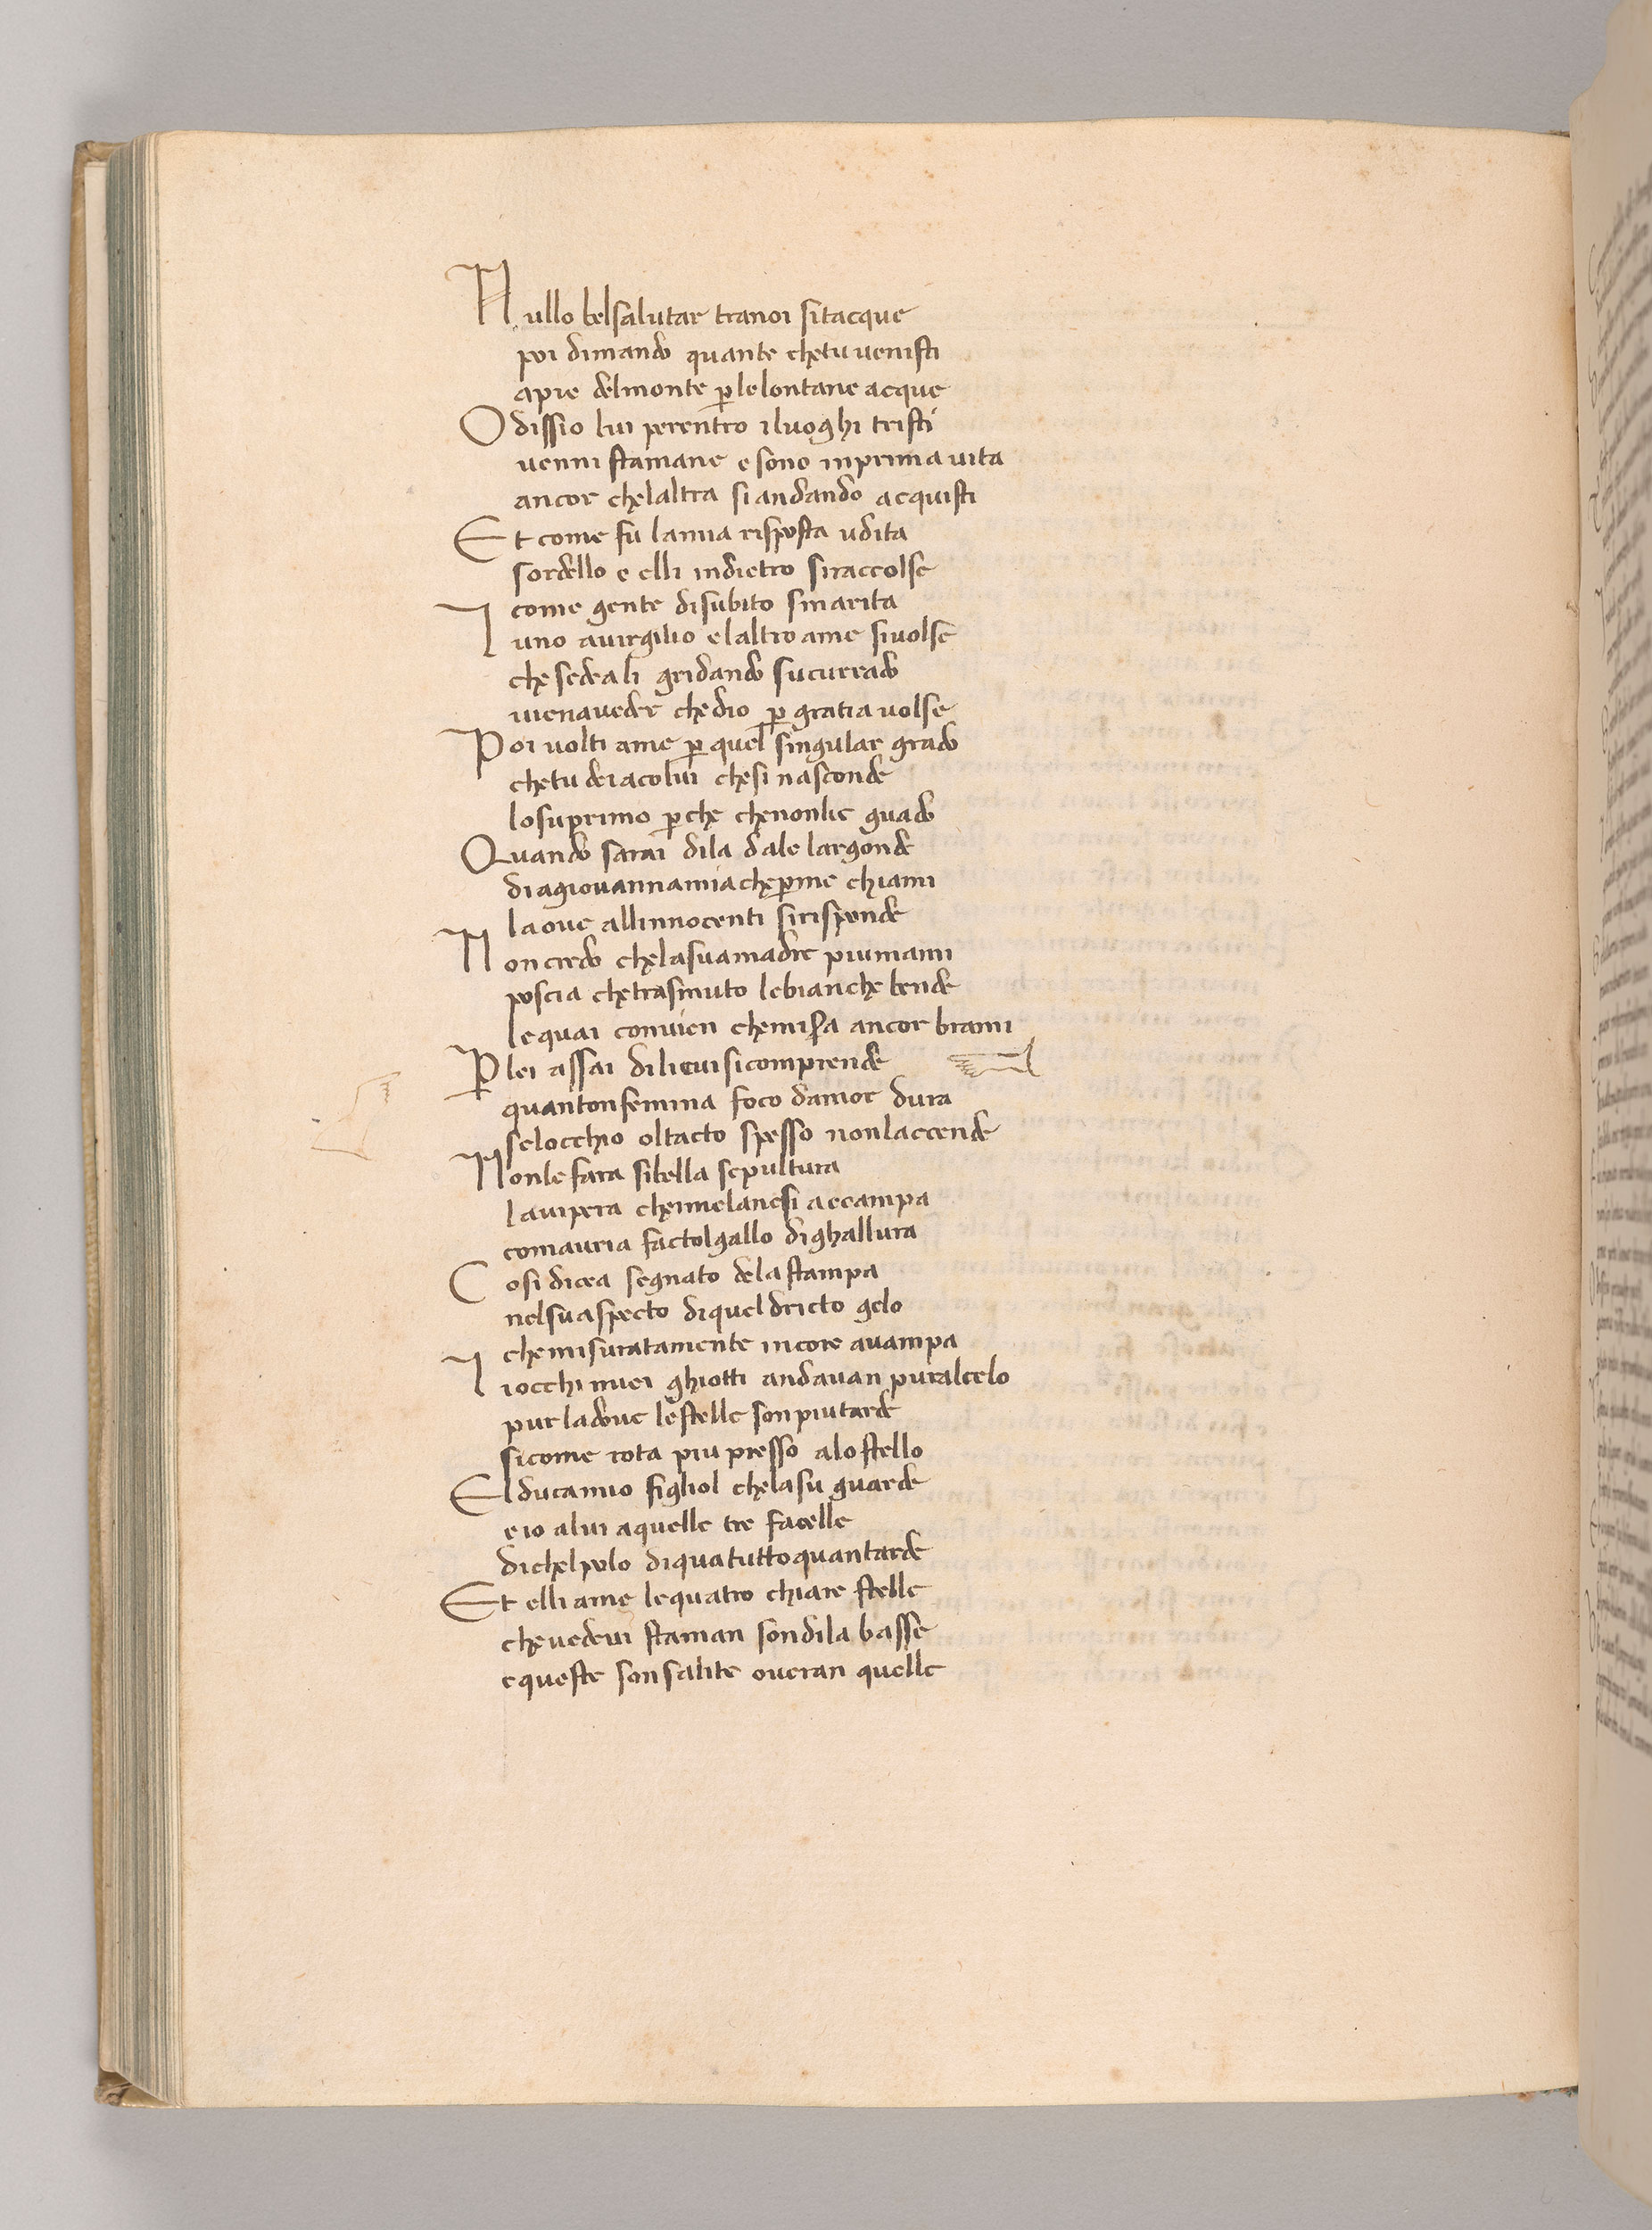 Nullo bel salutar tra noi si tacque
poi dimando quante che tu venisti
apie del monte p le lontane acque
O diss io lui per entro i luoghi tristi
venni stamane e sono in prima vita
ancor che laltra si andando acquisti
Et come fu la mia risposta udita
sordello e elli indietro si raccolse
come gente di subito smarita
Luno a virgilio e laltro a me si volse
che sedea li gridando su currado
vien a veder che dio p gratia volse
Poi volti a me p quel singular grado
che tu dei a colui che si nasconde
lo su primo pche che non lie guado
Quando sarai di la da le largonde
di a giovanna mia che pme chiami
la ove alli innocenti si risponde
Non credo che la sua madre piu mami
poscia che trasmuto le bianche bende
le quai convien che misa ancor brami
P lei assai di lievi si comprende
quanto n femina foco damor dura
se locchio ol tacto spesso non laccende
Non le fara si bella sepultura
la vipera che melanesi accampa
com auria facto l gallo di ghallura
Cosi dicea segnato de la stampa
nel su aspecto di quel dricto gelo
che misuratamente in core avampa
I iocchi miei ghiotti andavan pur al celo
pur la dove le stelle son piu tarde
si come rota piu presso a lo stello
El duca mio figliol che lasu guarde
e io a lui a quelle tre facelle
di chel polo di qua tutto quanto arde
Et elli a me le quatro chiare stelle
che vedevi staman son di la basse
e queste son salite overan quelle